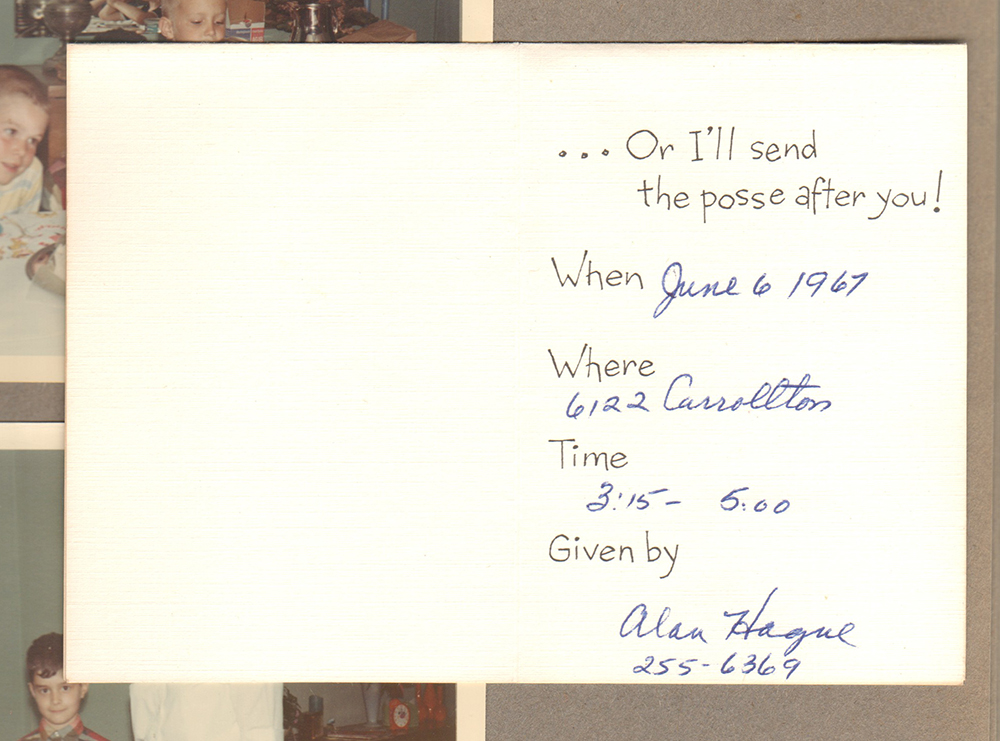 ... Or I'll send
the posse after you!
When June 6 1967
Where
6122 Carrollton
Time
3:15- 5:00
Given by
Alan Hague
255-6369